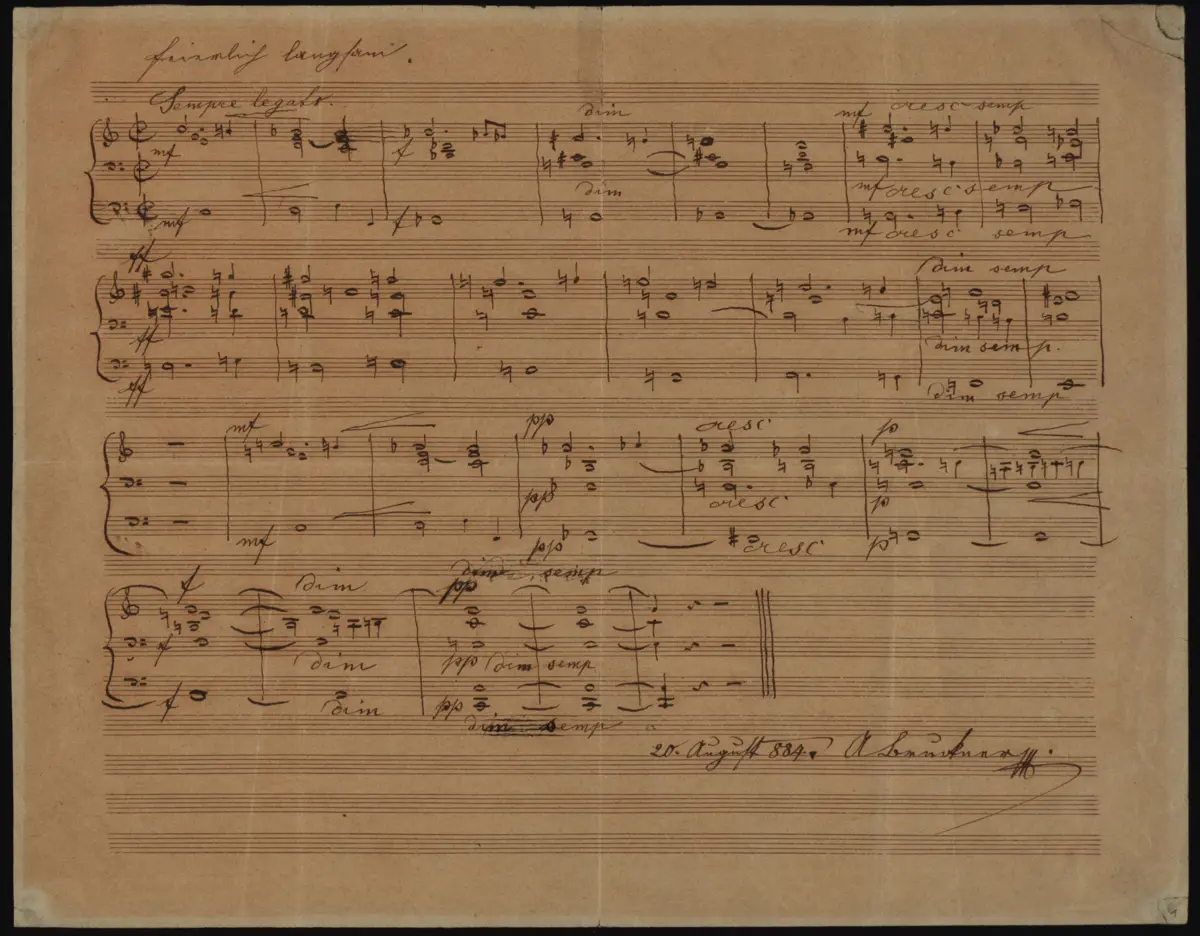 feierlich langsam.
Sempre legato.
dim mf cresc semp
mf f
dim mf cresc semp
mf f mf cresc semp
ff dim semp
ff dim semp.
ff dim semp
mf pp cresc p
pp cresc p
mf pp cresc p
dim semp
f dim pp
f dim pp dim semp
f dim pp
dim semp
20. August 884. A Bruckner